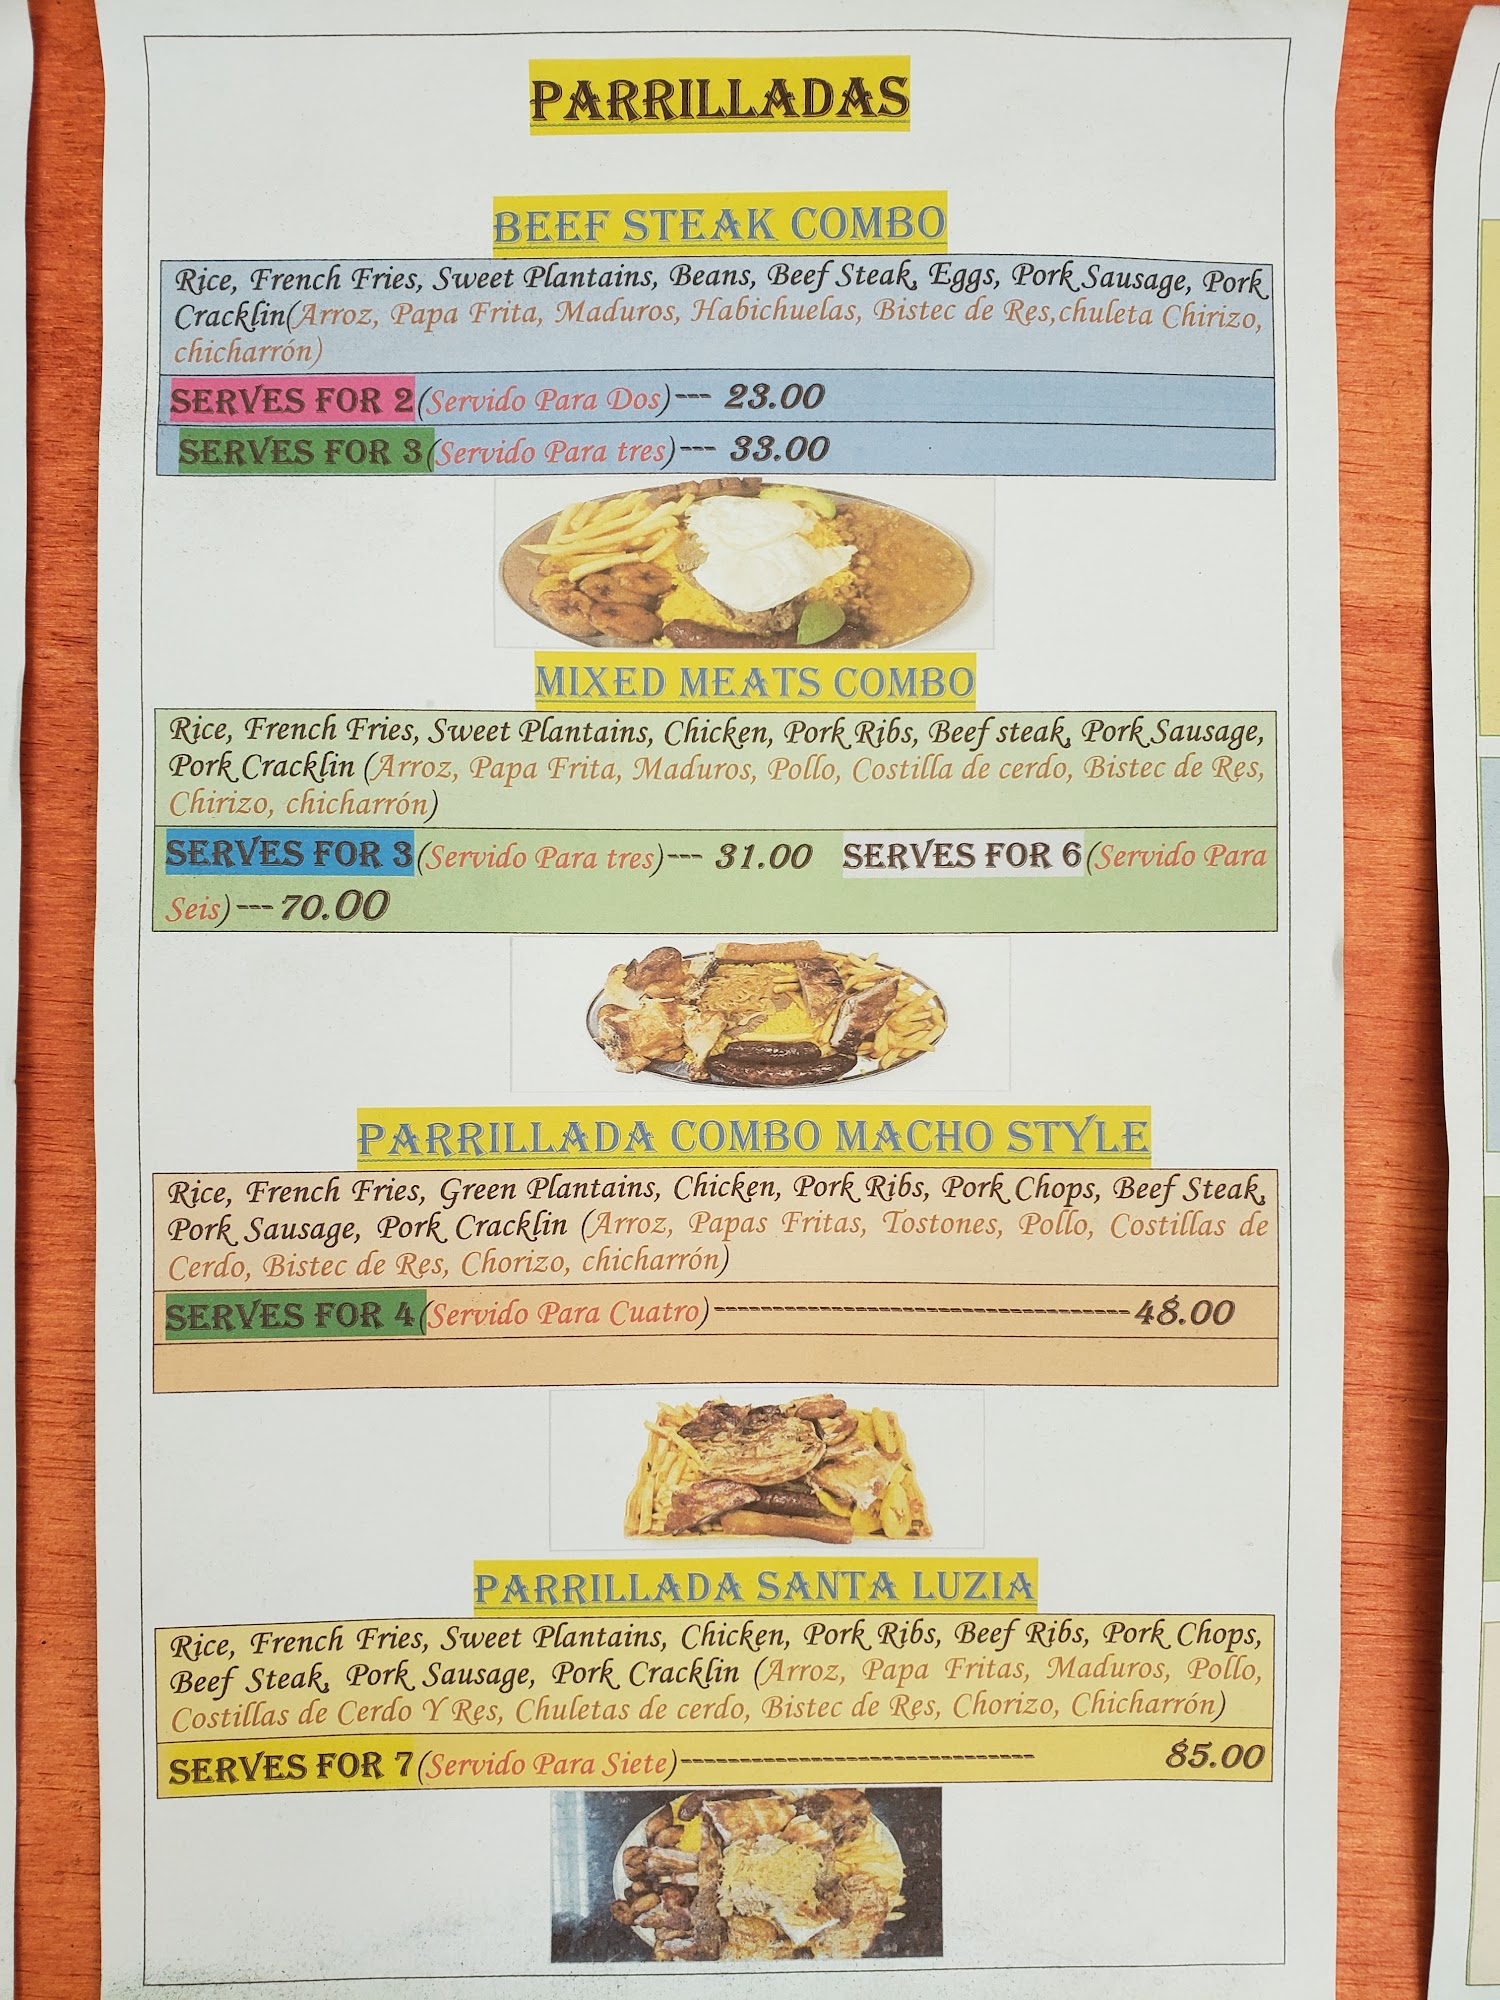 PARRILLADAS
BEEF STEAK COMBO
Rice, French Fries, Sweet Plantains, Beans, Beef Steak, Eggs, Pork Sausage, Pork
Cracklin(Arroz, Papa Frita, Maduros, Habichuelas, Bistec de Res,chuleta Chirizo,
chicharrón)
SERVES FOR 2(Servido Para Dos)--- 23.00
SERVES FOR 3(Servido Para tres)--- 33.00
MIXED MEATS COMBO
Rice, French Fries, Sweet Plantains, Chicken, Pork Ribs, Beef steak, Pork Sausage,
Pork Cracklin (Arroz, Papa Frita, Maduros, Pollo, Costilla de cerdo, Bistec de Res,
Chirizo, chicharrón)
SERVES FOR 3(Servido Para tres)--- 31.00 SERVES FOR 6(Servido Para
Seis)--- 70.00
PARRILLADA COMBO MACHO STYLE
Rice, French Fries, Green Plantains, Chicken, Pork Ribs, Pork Chops, Beef Steak,
Pork Sausage, Pork Cracklin (Arroz, Papas Fritas, Tostones, Pollo, Costillas de
Cerdo, Bistec de Res, Chorizo, chicharrón)
SERVES FOR 4(Servido Para Cuatro)-----------------------------------48.00
PARRILLADA SANTA LUZIA
Rice, French Fries, Sweet Plantains, Chicken, Pork Ribs, Beef Ribs, Pork Chops,
Beef Steak, Pork Sausage, Pork Cracklin (Arroz, Papa Fritas, Maduros, Pollo,
Costillas de Cerdo Y Res, Chuletas de cerdo, Bistec de Res, Chorizo, Chicharrón)
SERVES FOR 7(Servido Para Siete)------------------------------ 85.00